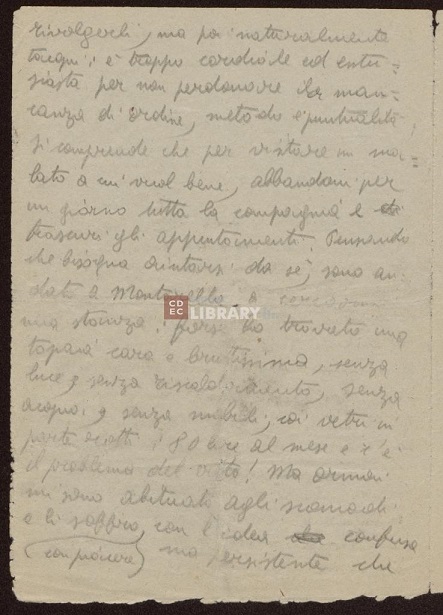 rivolgerli, ma poi naturalmente
tacqui; è troppo cordiale ed entu=
siasta per non perdonare la man=
canza di ordine, metodo e puntualità.
Si comprende che per visitare un ma=
lato a cui vuol bene, abbandoni per
un giorno tutta la compagnia e
trascuri gli appuntamenti. Pensando
che bisogna aiutarsi da sè, sono an=
data a Montanello a
CDEC LIBRARY
una stanza; forse ho trovato una
topaia cara e bruttissima, senza
luce, e senza riscaldamento, senza
acqua, e senza mobili, coi vetri in
parte rotti; 80 lire al mese e c'è
il problema del vitto! Ma ormai
mi sono abituata agli scomodi
e li soffro, con l'idea confusa
(con piacere) ma persistente che